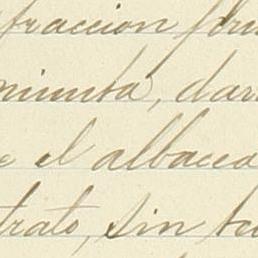 fraccion
miunta, dar
e el albacea
trato, sin te